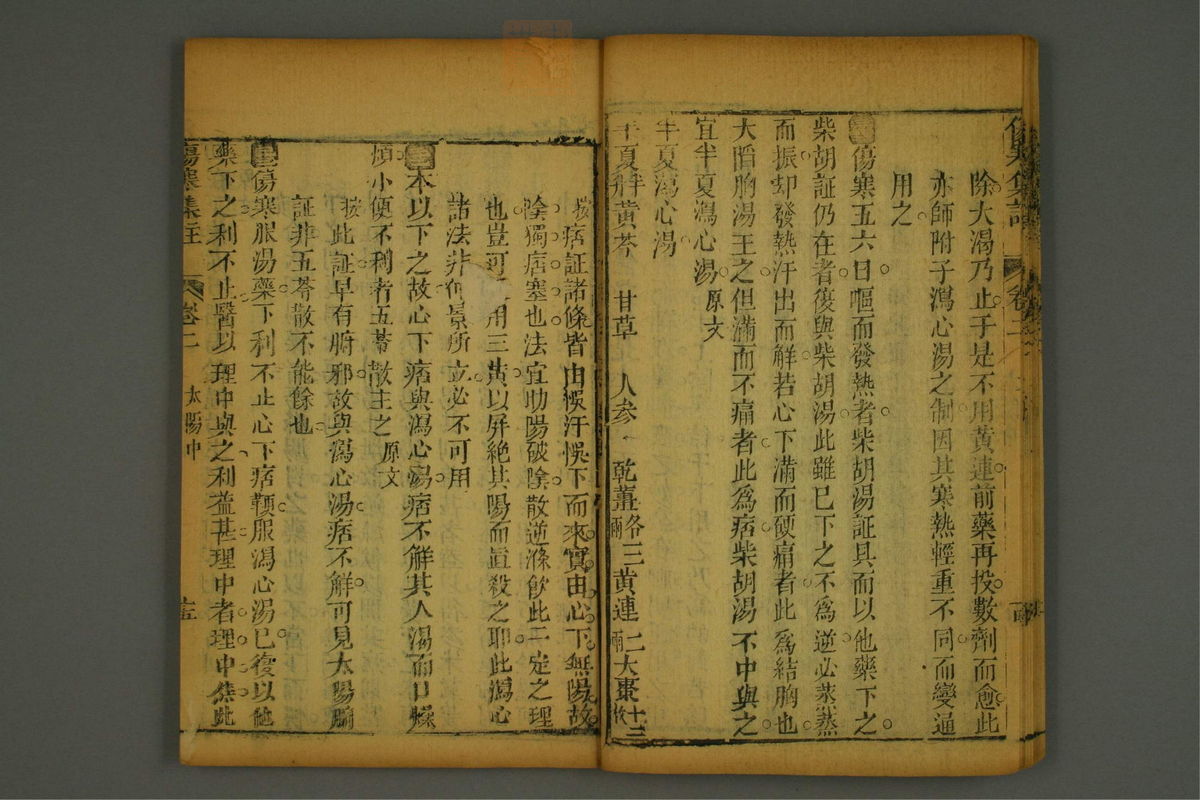 傷寒集註 卷二
除大渴乃止于是不用黃連前藥再投數劑而愈此
亦師附子瀉心湯之制因其寒熱輕重不同而變通
用之
傷寒五六日嘔而發熱者柴胡湯証具而以他藥下之
柴胡証仍在者復與柴胡湯此雖已下之不為逆必蒸蒸
而振却發熱汗出而解若心下滿而硬痛者此為結胸也
大䧟胸湯主之但滿而不痛者此為痞柴胡湯不中與之
宜半夏瀉心湯 原文
半夏瀉心湯
半夏半觔 黃芩 甘草 人參 乾薑各三兩 黃連二兩 大棗十二枚
按痞証諸條皆由悞汗悞下而來實由心下無陽故
陰獨痞塞也法宜助陽破陰散逆滌飲此一定之理
也豈可用三黃以屏絕其陽而直殺之耶此瀉心
諸法非仲景所立必不可用
本以下之故心下痞與瀉心湯痞不解其人渴而口燥
煩小便不利者五苓散主之 原文
按此証早有腑邪故與瀉心湯痞不解可見太陽腑
証非五苓散不能除也
傷寒服湯藥下利不止心下痞鞕服瀉心湯已復以他
藥下之利不止醫以理中與之利益甚理中者理中焦此
傷寒集註 卷二 太陽中